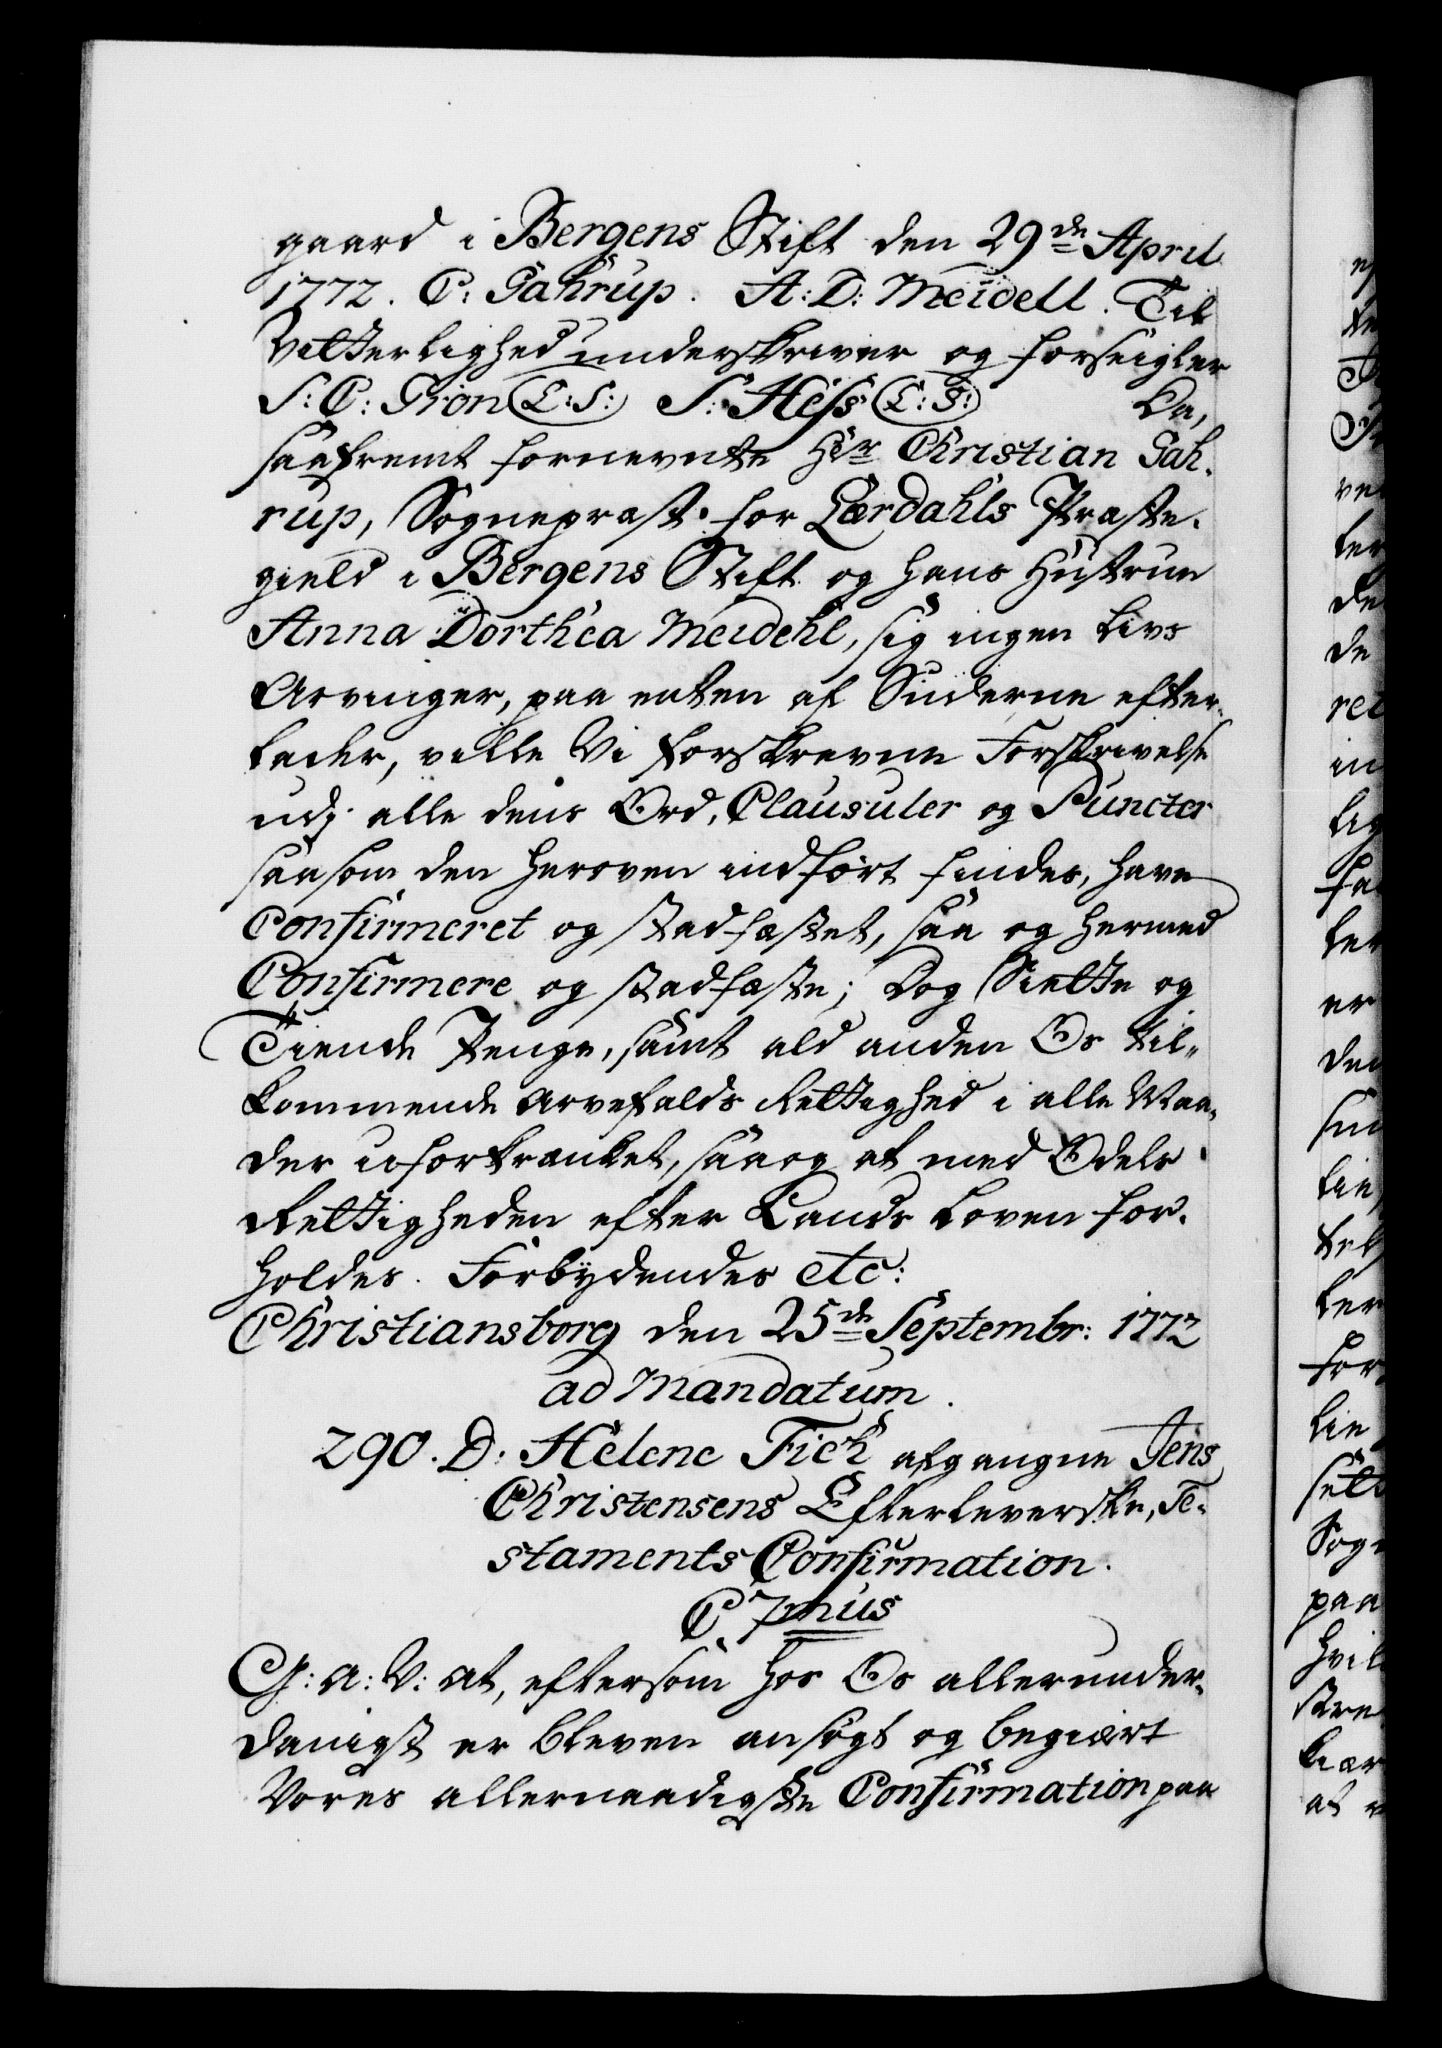 gaard i Bergens Stift den 29de April
1772. C: Gahrup. A: D: Meidell. Til
Vitterlighed underskriver og forseigler
S: C: Grön (L:S:) S: Hess (L:S:) Da,
saafremt fornevnte Hr Christian Gah-
rup, Sognepræst for Lærdahls Præste-
gield i Bergens Stift og hans Hustrue
Anna Dorthea Meidehl, sig ingen Livs
Arvinger, paa enten af Siderne efter-
lader, ville Vi forskrevne Forskrivelse
udj alle dens Ord, Clausuler og Puncter
saasom den heroven indført findes, have
Confirmeret og stadfæstet, saa og hermed
Confirmere og stadfæste; Dog Siette og
Tiende Penge, samt ald anden Os til-
kommende Arvefalds Rettighed i alle Maa-
der uforkrænket, saa og at med Odels
Rettigheden efter Lands Loven for-
holdes. Forbydendes etc:
Christiansborg den 25de Septembr: 1772
ad Mandatum.
290. D: Helene Fick afgangne Jens
Christensens Efterleverske, Te-
staments Confirmation.
C 7mus
G: A: V: At, eftersom hos Os allerunder-
danigst er bleven ansøgt og begiært
Vores allernaadigste Confirmation paa